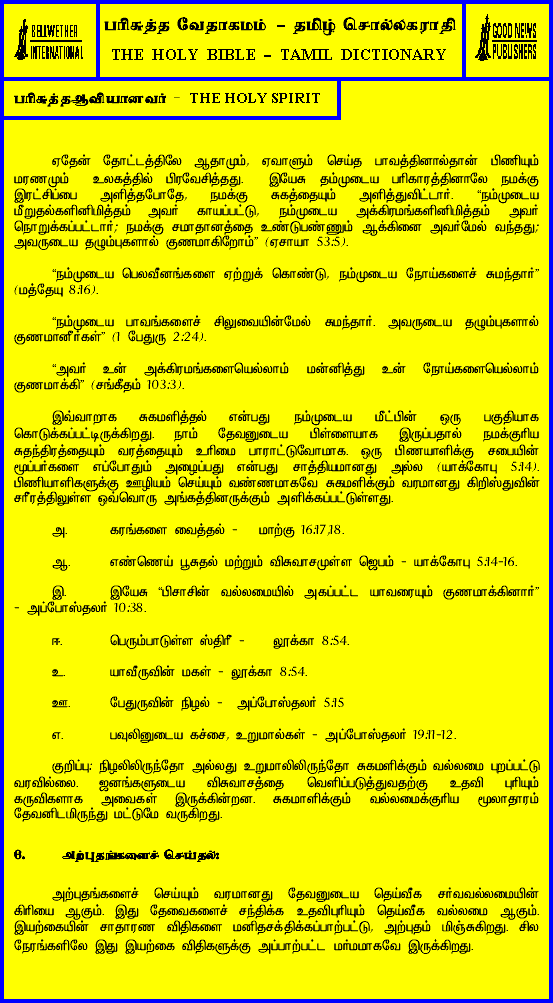 BELLWETHER
INTERNATIONAL
பரிசுத்த வேதாகமம் – தமிழ் சொல்லகராதி
THE HOLY BIBLE – TAMIL DICTIONARY
GOOD NEWS
PUBLISHERS
பரிசுத்தஆவியானவர் – THE HOLY SPIRIT
ஏதேன் தோட்டத்திலே ஆதாமும், ஏவாளும் செய்த பாவத்தினால்தான் பிணியும்
மரணமும் உலகத்தில் பிரவேசித்தது. இயேசு தம்முடைய பரிகாரத்தினாலே நமக்கு
இரட்சிப்பை அளித்தபோதே, நமக்கு சுகத்தையும் அளித்துவிட்டார். “நம்முடைய
மீறுதல்களினிமித்தம் அவர் காயப்பட்டு, நம்முடைய அக்கிரமங்களினிமித்தம் அவர்
நொறுக்கப்பட்டார்; நமக்கு சமாதானத்தை உண்டுபண்ணும் ஆக்கினை அவர்மேல் வந்தது;
அவருடைய தழும்புகளால் குணமாகிறோம்” (ஏசாயா 53:5).
“நம்முடைய பெலவீனங்களை ஏற்றுக் கொண்டு, நம்முடைய நோய்களைச் சுமந்தார்”
(மத்தேயு 8:16).
“நம்முடைய பாவங்களைச் சிலுவையின்மேல் சுமந்தார். அவருடைய தழும்புகளால்
குணமானீர்கள்” (1 பேதுரு 2:24).
“அவர் உன் அக்கிரமங்களையெல்லாம் மன்னித்து உன் நோய்களையெல்லாம்
குணமாக்கி” (சங்கீதம் 103:3).
இவ்வாறாக சுகமளித்தல் என்பது நம்முடைய மீட்பின் ஒரு பகுதியாக
கொடுக்கப்பட்டிருக்கிறது. நாம் தேவனுடைய பிள்ளையாக இருப்பதால் நமக்குரிய
சுதந்திரத்தையும் வரத்தையும் உரிமை பாராட்டுவோமாக. ஒரு பிணயாளிக்கு சபையின்
மூப்பர்களை எப்போதும் அழைப்பது என்பது சாத்தியமானது அல்ல (யாக்கோபு 5:14).
பிணியாளிகளுக்கு ஊழியம் செய்யும் வண்ணமாகவே சுகமளிக்கும் வரமானது கிறிஸ்துவின்
சரீரத்திலுள்ள ஒவ்வொரு அங்கத்தினருக்கும் அளிக்கப்பட்டுள்ளது.
அ. கரங்களை வைத்தல் – மாற்கு 16:17,18.
ஆ. எண்ணெய் பூசுதல் மற்றும் விசுவாசமுள்ள ஜெபம் – யாக்கோபு 5:14-16.
இ. இயேசு “பிசாசின் வல்லமையில் அகப்பட்ட யாவரையும் குணமாக்கினார்”
– அப்போஸ்தலர் 10:38.
ஈ. பெரும்பாடுள்ள ஸ்திரீ – லூக்கா 8:54.
உ. யாவீருவின் மகள் – லூக்கா 8:54.
ஊ. பேதுருவின் நிழல் – அப்போஸ்தலர் 5:15
எ. பவுலினுடைய கச்சை, உறுமால்கள் – அப்போஸ்தலர் 19:11-12.
குறிப்பு: நிழலிலிருந்தோ அல்லது உறுமாலிலிருந்தோ சுகமளிக்கும் வல்லமை புறப்பட்டு
வரவில்லை. ஜனங்களுடைய விசுவாசத்தை வெளிப்படுத்துவதற்கு உதவி புரியும்
கருவிகளாக அவைகள் இருக்கின்றன. சுகமாளிக்கும் வல்லமைக்குரிய மூலாதாரம்
தேவனிடமிருந்து மட்டுமே வருகிறது.
6. அற்புதங்களைச் செய்தல்:
அற்புதங்களைச் செய்யும் வரமானது தேவனுடைய தெய்வீக சர்வவல்லமையின்
கிரியை ஆகும். இது தேவைகளைச் சந்திக்க உதவிபுரியும் தெய்வீக வல்லமை ஆகும்.
இயற்கையின் சாதாரண விதிகளை மனிதசக்திக்கப்பாற்பட்டு, அற்புதம் மிஞ்சுகிறது. சில
நேரங்களிலே இது இயற்கை விதிகளுக்கு அப்பாற்பட்ட மர்மமாகவே இருக்கிறது.